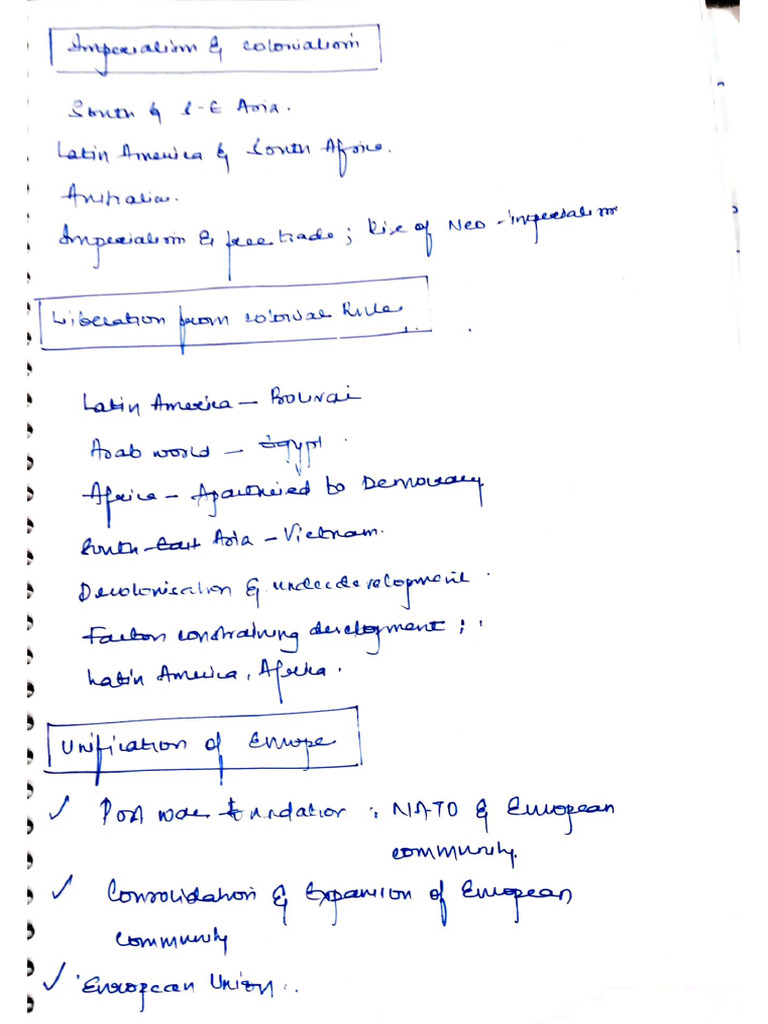 Imperialism & colonialism
South & S-E Asia.
Latin America & South Africa.
Australia.
Imperialism & free trade; Rise of Neo-imperialism
Liberation from colonial Rule
Latin America - Bolivar
Arab world - Egypt
Africa - Apartheid to Democracy
South-East Asia - Vietnam.
Decolonisation & underdevelopment.
Factors constraining development;
Latin America, Africa.
Unification of Europe
✓ Post war foundation: NATO & European
community.
✓ Consolidation & Expansion of European
community
✓ European Union.